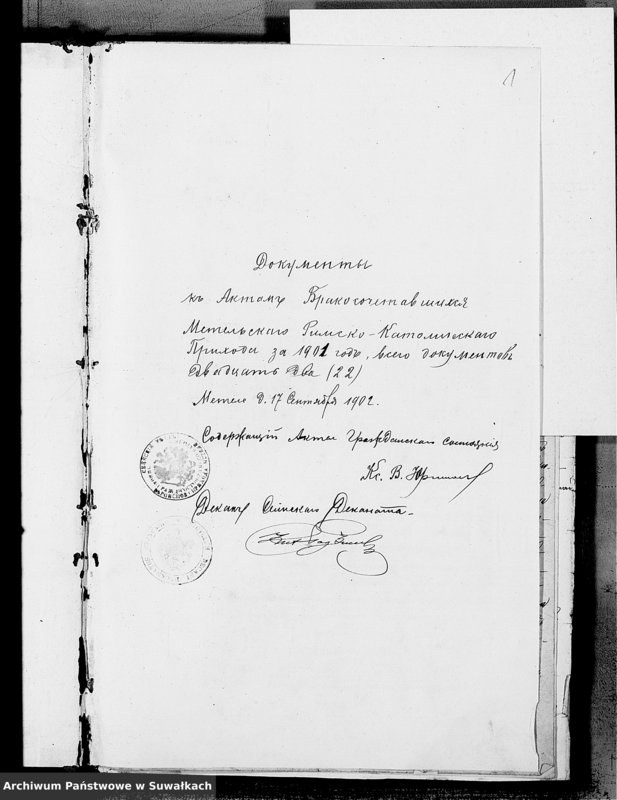 1
Документы
къ Актамъ Бракосочетавшихся
Метельскаго Римско-Католическаго
Прихода за 1901 годъ, всего документовъ
двадцать два (22)
Метеле д. 17 Сентября 1902.
Содержащій Акты Гражданскаго состоянія
Кс. В.
Деканъ Сейнскаго Деканата.
Archiwum Państwowe w Suwałkach